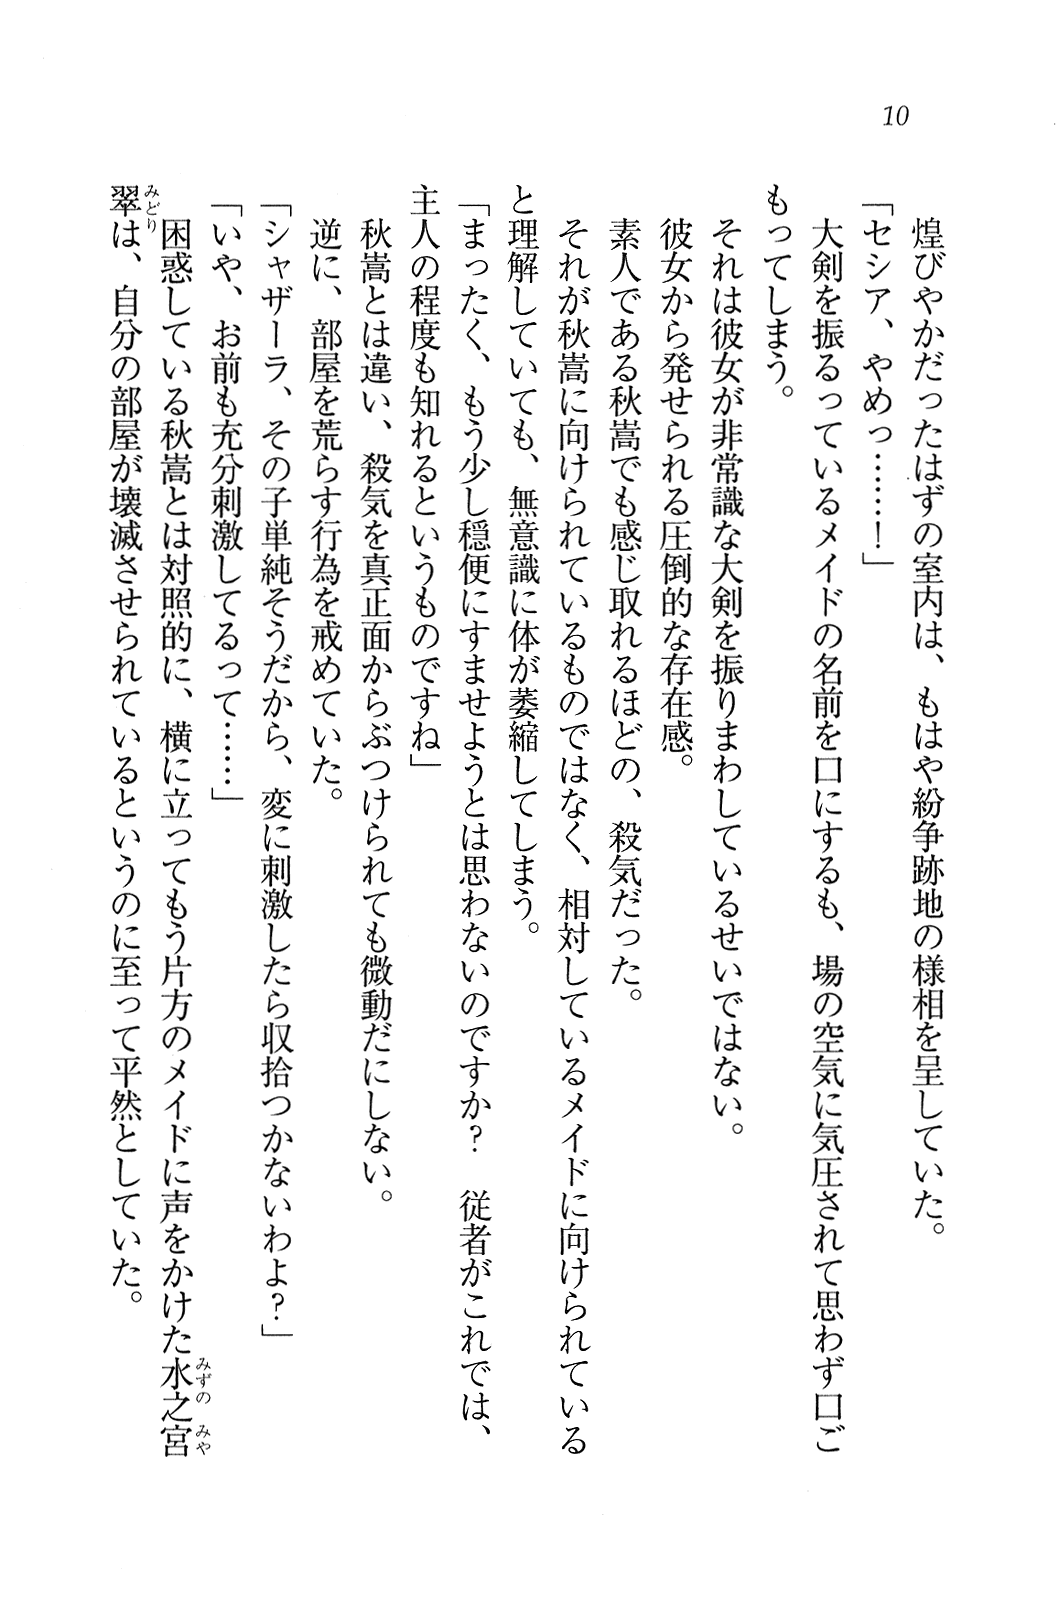 10
煌びやかだったはずの室内は、もはや紛争跡地の様相を呈していた。
「セシア、やめっ……！」
大剣を振るっているメイドの名前を口にするも、場の空気に気圧されて思わず口ご
もってしまう。
それは彼女が非常識な大剣を振りまわしているせいではない。
彼女から発せられる圧倒的な存在感。
素人である秋嵩でも感じ取れるほどの、殺気だった。
それが秋嵩に向けられているものではなく、相対しているメイドに向けられている
と理解していても、無意識に体が萎縮してしまう。
「まったく、もう少し穏便にすませようとは思わないのですか？　従者がこれでは、
主人の程度も知れるというものですね」
秋嵩とは違い、殺気を真正面からぶつけられても微動だにしない。
逆に、部屋を荒らす行為を戒めていた。
「シャザーラ、その子単純そうだから、変に刺激したら収拾つかないわよ？」
「いや、お前も充分刺激してるって……」
困惑している秋嵩とは対照的に、横に立ってもう片方のメイドに声をかけた水之宮
みずの みや
翠は、自分の部屋が壊滅させられているというのに至って平然としていた。
みどり